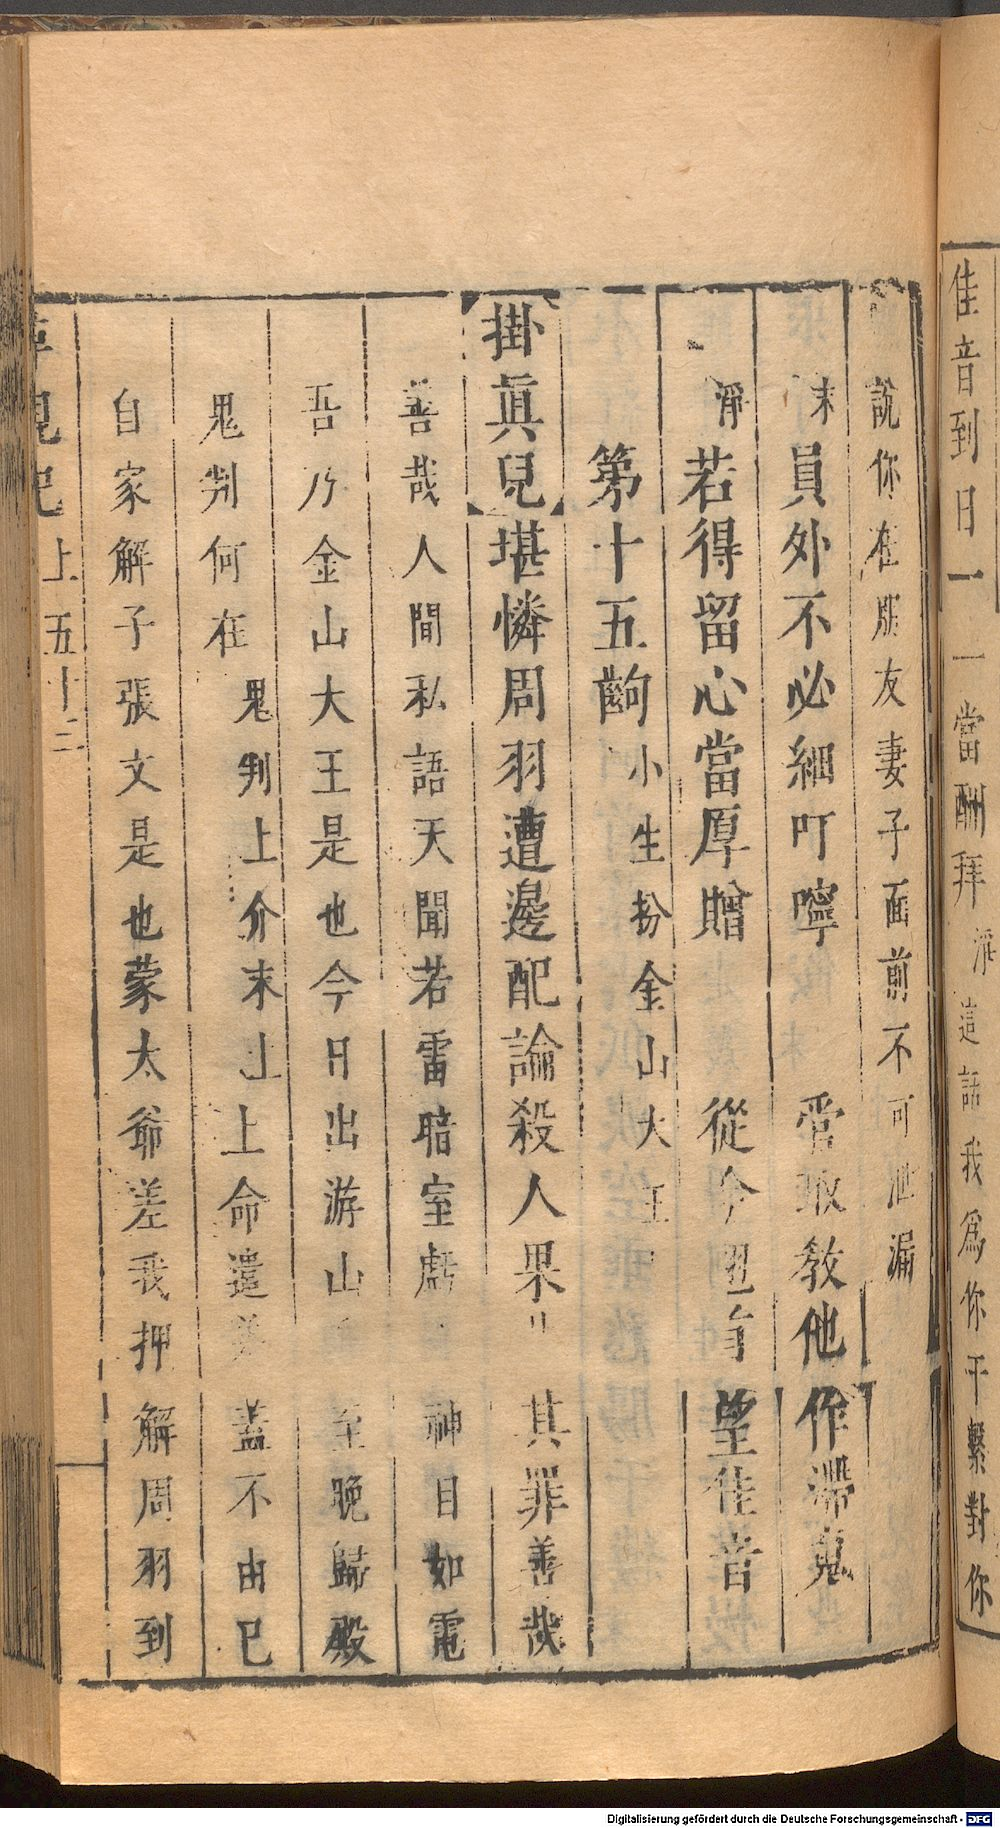 佳音到日一一當酬拜 淨 這話我爲你干繫對你
說你在朋友妻子面前不可泄漏
末 員外不必細叮嚀 敢教他作滯
淨 若得留心當厚贈 從今 望佳音
第十五齣 小生扮金山大王
掛眞兒 堪憐周羽遭邊配論殺人果 其罪善哉
善哉人間私語天聞若雷暗室虧 神目如電
吾乃金山大王是也今日出游山 至晚歸殿
鬼判何在 鬼判上介末上 上命遣 蓋不由己
自家解子張文是也蒙太爺差我押解周羽到
記 上五十三
Digitalisierung gefördert durch die Deutsche Forschungsgemeinschaft - DFG